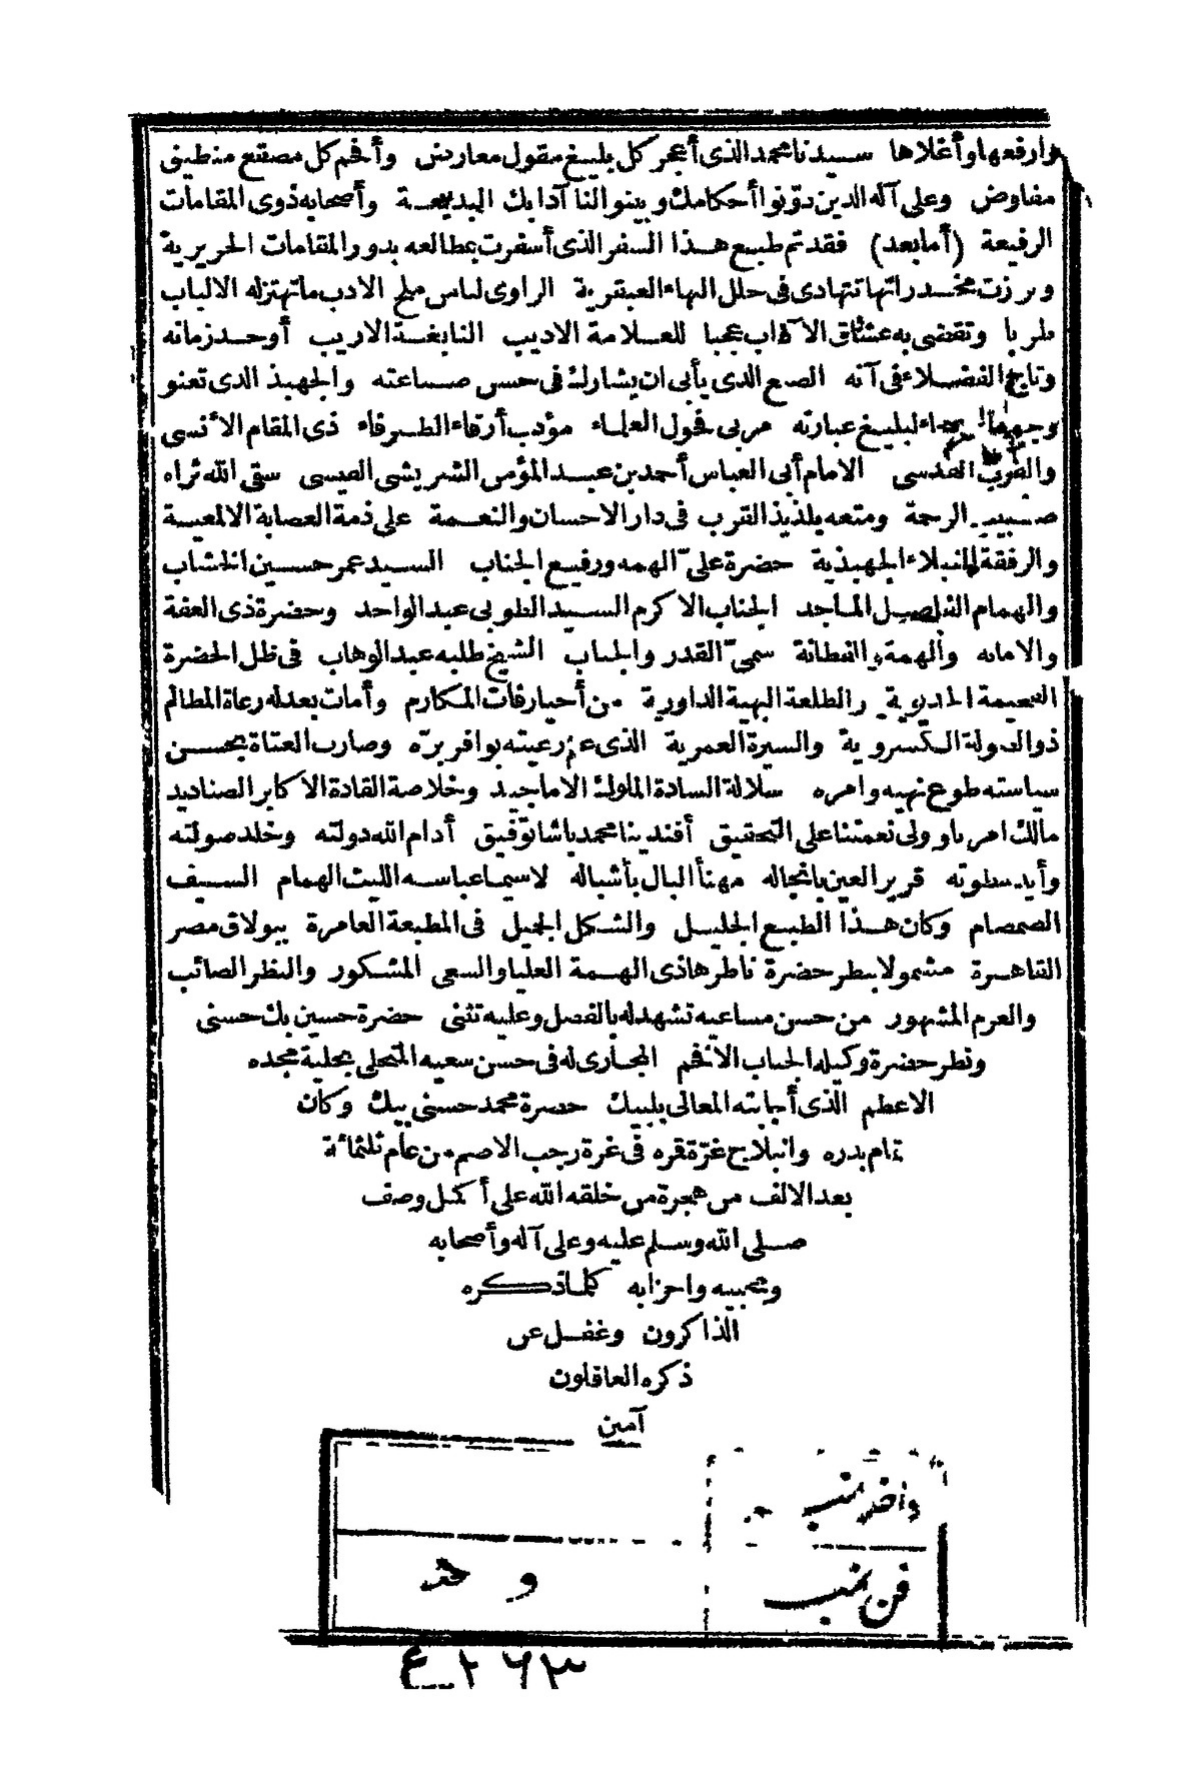 وارفعها وأغلاها سيدنا محمد الذى أعجز كل بليغ مقول معارض وأفحم كل مصقع منطيق
مفاوض وعلى آله الذين دوّنوا أحكامك وبينوا لنا آدابك البديعة وأصحابه ذوى المقامات
الرفيعة (أما بعد) فقد تم طبع هذا السفر الذى أسفرت بمطالعه بدور المقامات الحريرية
وبرزت مخدراتها تتهادى فى حلل البهاء العبقرية الراوى لناس ملح الادب ما تهتز له الالباب
طربا وتقضى به عشاق الآداب عجبا للعلامة الاديب النابغة الاريب أوحد زمانه
وتاج الفضلاء فى آنه الصع الذى يأبى ان يشارك فى حسن صناعته والجهبذ الذى تعنو
وجهاء لبليغ عبارته مربى فحول العلماء مؤدب أرقاء الظرفاء ذى المقام الأنسى
والقرب القدسى الامام أبى العباس أحمد بن عبد المؤمن الشريشى القيسى سقى الله ثراه
صبيب الرحمة ومتعه بلذيذ القرب فى دار الاحسان والنعمة على ذمة العصابة الالمعية
والرفقة النبلاء الجهبذية حضرة علىّ الهمه ورفيع الجناب السيد عمر حسين الخشاب
والهمام الفاصيل الماجد الجناب الاكرم السيد الطوبى عبد الواحد وحضرة ذى العفة
والامانه والهمة والفطانة سمىّ القدر والجناب الشيخ طلبه عبد الوهاب فى ظل الحضرة
الفخيمة الخديوية والطلعة البهية الداورية من أحيا رفات المكارم وأمات بعدله رعاة المظالم
ذو الدولة الكسروية والسيرة العمرية الذى عم رعيته بوافر برّه وصارت العتاة بحسن
سياسته طوع نهيه وامره سلالة السادة الملوك الاماجيد وخلاصة القادة الاكابر الصناديد
مالك امرنا وولى نعمتنا على التحقيق أفندينا محمد باشا توفيق أدام الله دولته وخلد صولته
وأيد سطوته قرير العين بانجاله مهنأ البال بأشباله لاسيما عباسه الليث الهمام السيف
الصمصام وكان هذا الطبع الجليل والشكل الجميل فى المطبعة العامرة ببولاق مصر
القاهرة مشمولا بنظر حضرة ناظرها ذى الهمة العليا والسعى المشكور والنظر الصائب
والعزم المشهور من حسن مساعيه تشهد له بالفضل وعليه تثنى حضرة حسين بك حسنى
ونظر حضرة وكيله الجناب الأفخم المجارى له فى حسن سعيه المتحلى بحلية مجده
الاعظم الذى أجابته المعالى بلبيك حضرة محمد حسنى بيك وكان
تمام بدره وانبلاج غرّة قره فى غرة رجب الاصم من عام ثلثمائة
بعد الالف من هجرة من خلقه الله على أكمل وصف
صلى الله وسلم عليه وعلى آله وأصحابه
ومحبيه واحزابه كلما ذكره
الذاكرون وغفل عن
ذكره الغافلون
آمين
فن نمبر